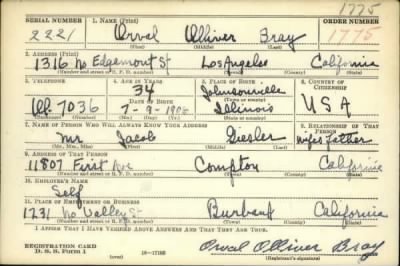 1775
SERIAL NUMBER 1. NAME (Print) ORDER NUMBER
2221 Orval Olliver Bray 1775
(First) (Middle) (Last)
2. ADDRESS (Print)
1316 No Edgemont St Los Angeles California
(Number and street or R. F. D. number) (Town) (County) (State)
3. TELEPHONE 4. AGE IN YEARS 5. PLACE OF BIRTH 6. COUNTRY OF CITIZENSHIP
34 Johnsonville
DATE OF BIRTH (Town or county)
7036 7-9-1906 Illinois USA
(Exchange) (Number) (Mo.) (Day) (Yr.) (State or country)
7. NAME OF PERSON WHO WILL ALWAYS KNOW YOUR ADDRESS 8. RELATIONSHIP OF THAT PERSON
Mr Jacob Giesler wifes father
(Mr., Mrs., Miss) (First) (Middle) (Last)
9. ADDRESS OF THAT PERSON
11807 First Ave Compton California
(Number and street or R. F. D. number) (Town) (County) (State)
10. EMPLOYER'S NAME
Self
11. PLACE OF EMPLOYMENT OR BUSINESS
1731 No Valley St Burbank California
(Number and street or R. F. D. number) (Town) (County) (State)
I AFFIRM THAT I HAVE VERIFIED ABOVE ANSWERS AND THAT THEY ARE TRUE.
REGISTRATION CARD
D. S. S. Form 1 Orval Olliver Bray
(over) (Registrant's signature)